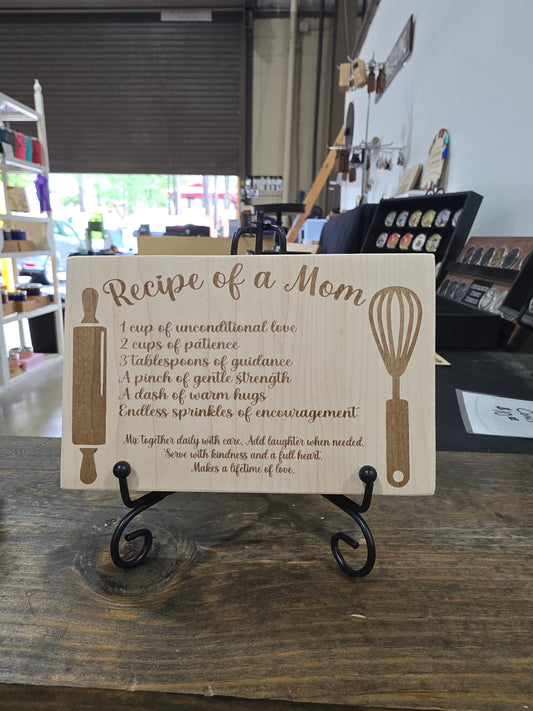 Recipe of a Mom
1 cup of unconditional love
2 cups of patience
3 tablespoons of guidance
A pinch of gentle strength
A dash of warm hugs
Endless sprinkles of encouragement
Mix together daily with care. Add laughter when needed.
Serve with kindness and a full heart.
Makes a lifetime of love.